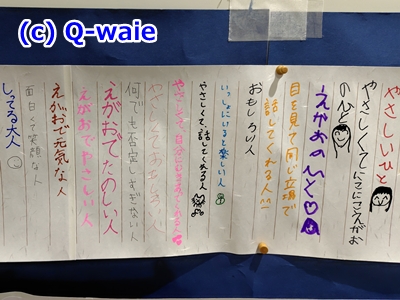 (c) Q-waie
やさしいひと
やさしくてにこにこえがお
のひと
えがおのひと♡
目を見て同じ立場で
話してくれる人
おもしろい人
いっしょにいると楽しい人
やさしくて、話してくれる人
やさしくておもしろい人
何でも否定しすぎない人
えがおでたのしい人
えがおでやさしい人
えがおで元気な人
面白くて笑顔な人
しってる大人